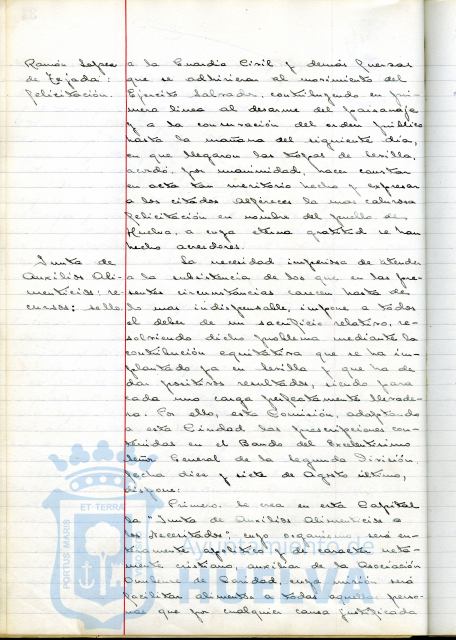 Ramón López
de Tejada:
felicitación.
a la Guardia Civil y demás fuerzas
que se adhirieran al movimiento del
Ejército Salvador, contribuyendo en pri-
mera línea al desarme del paisanaje
y a la conservación del orden público
hasta la mañana del siguiente día,
en que llegaron las tropas de Sevilla,
acordó, por unanimidad, hacer constar
en acta tan meritorio hecho y expresar
a los citados Alféreces la mas calurosa
felicitación en nombre del pueblo de
Huelva, a cuya eterna gratitud se han
hecho acreedores.
Junta de
Auxilios Ali-
menticios: re-
cursos: sello.
La necesidad imperiosa de atender
a la subsistencia de los que en las pre-
sentes circunstancias carecen hasta de
lo mas indispensable, impone a todos
el deber de un sacrificio relativo, re-
solviendo dicho problema mediante la
contribución equitativa que se ha im-
plantado ya en Sevilla y que ha de
dar positivos resultados, siendo para
cada uno carga perfectamente llevade-
ra. Por ello, esta Comisión, adaptando
a esta Ciudad las prescripciones con-
tenidas en el Bando del Excelentísimo
Señor General de la Segunda División,
fecha diez y siete de Agosto último,
dispone:
Primero. Se crea en esta Capital
la "Junta de Auxilios Alimenticios a
los Necesitados", cuyo organismo será en-
teramente apolítico y de carácter neta-
mente cristiano, auxiliar de la Asociación
Onubense de Caridad, cuya misión será
facilitar alimentos a todas aquellas perso-
nas que por cualquier causa justificada
PORTUS MARIS
ET TERRAE
Ayuntamiento de
HUELVA